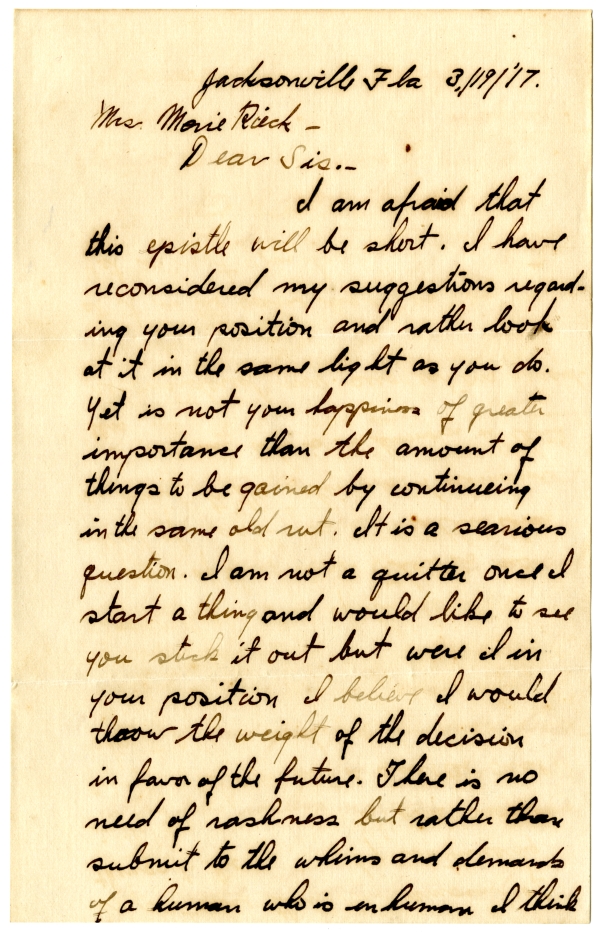 Jacksonville Fla 3/19/'17.
Mrs. Marie Rieck -
Dear Sis.-
I am afraid that
this epistle will be short. I have
reconsidered my suggestions regard-
ing your position and rather look
at it in the same light as you do.
Yet is not your happiness of greater
importance than the amount of
things to be gained by continueing
in the same old rut. It is a searious
question. I am not a quitter once I
start a thing and would like to see
you stick it out but were I in
your position I believe I would
thow the weight of the decision
in favor of the future. There is no
need of rashness but rather than
submit to the whims and demands
of a human who is enhuman I think